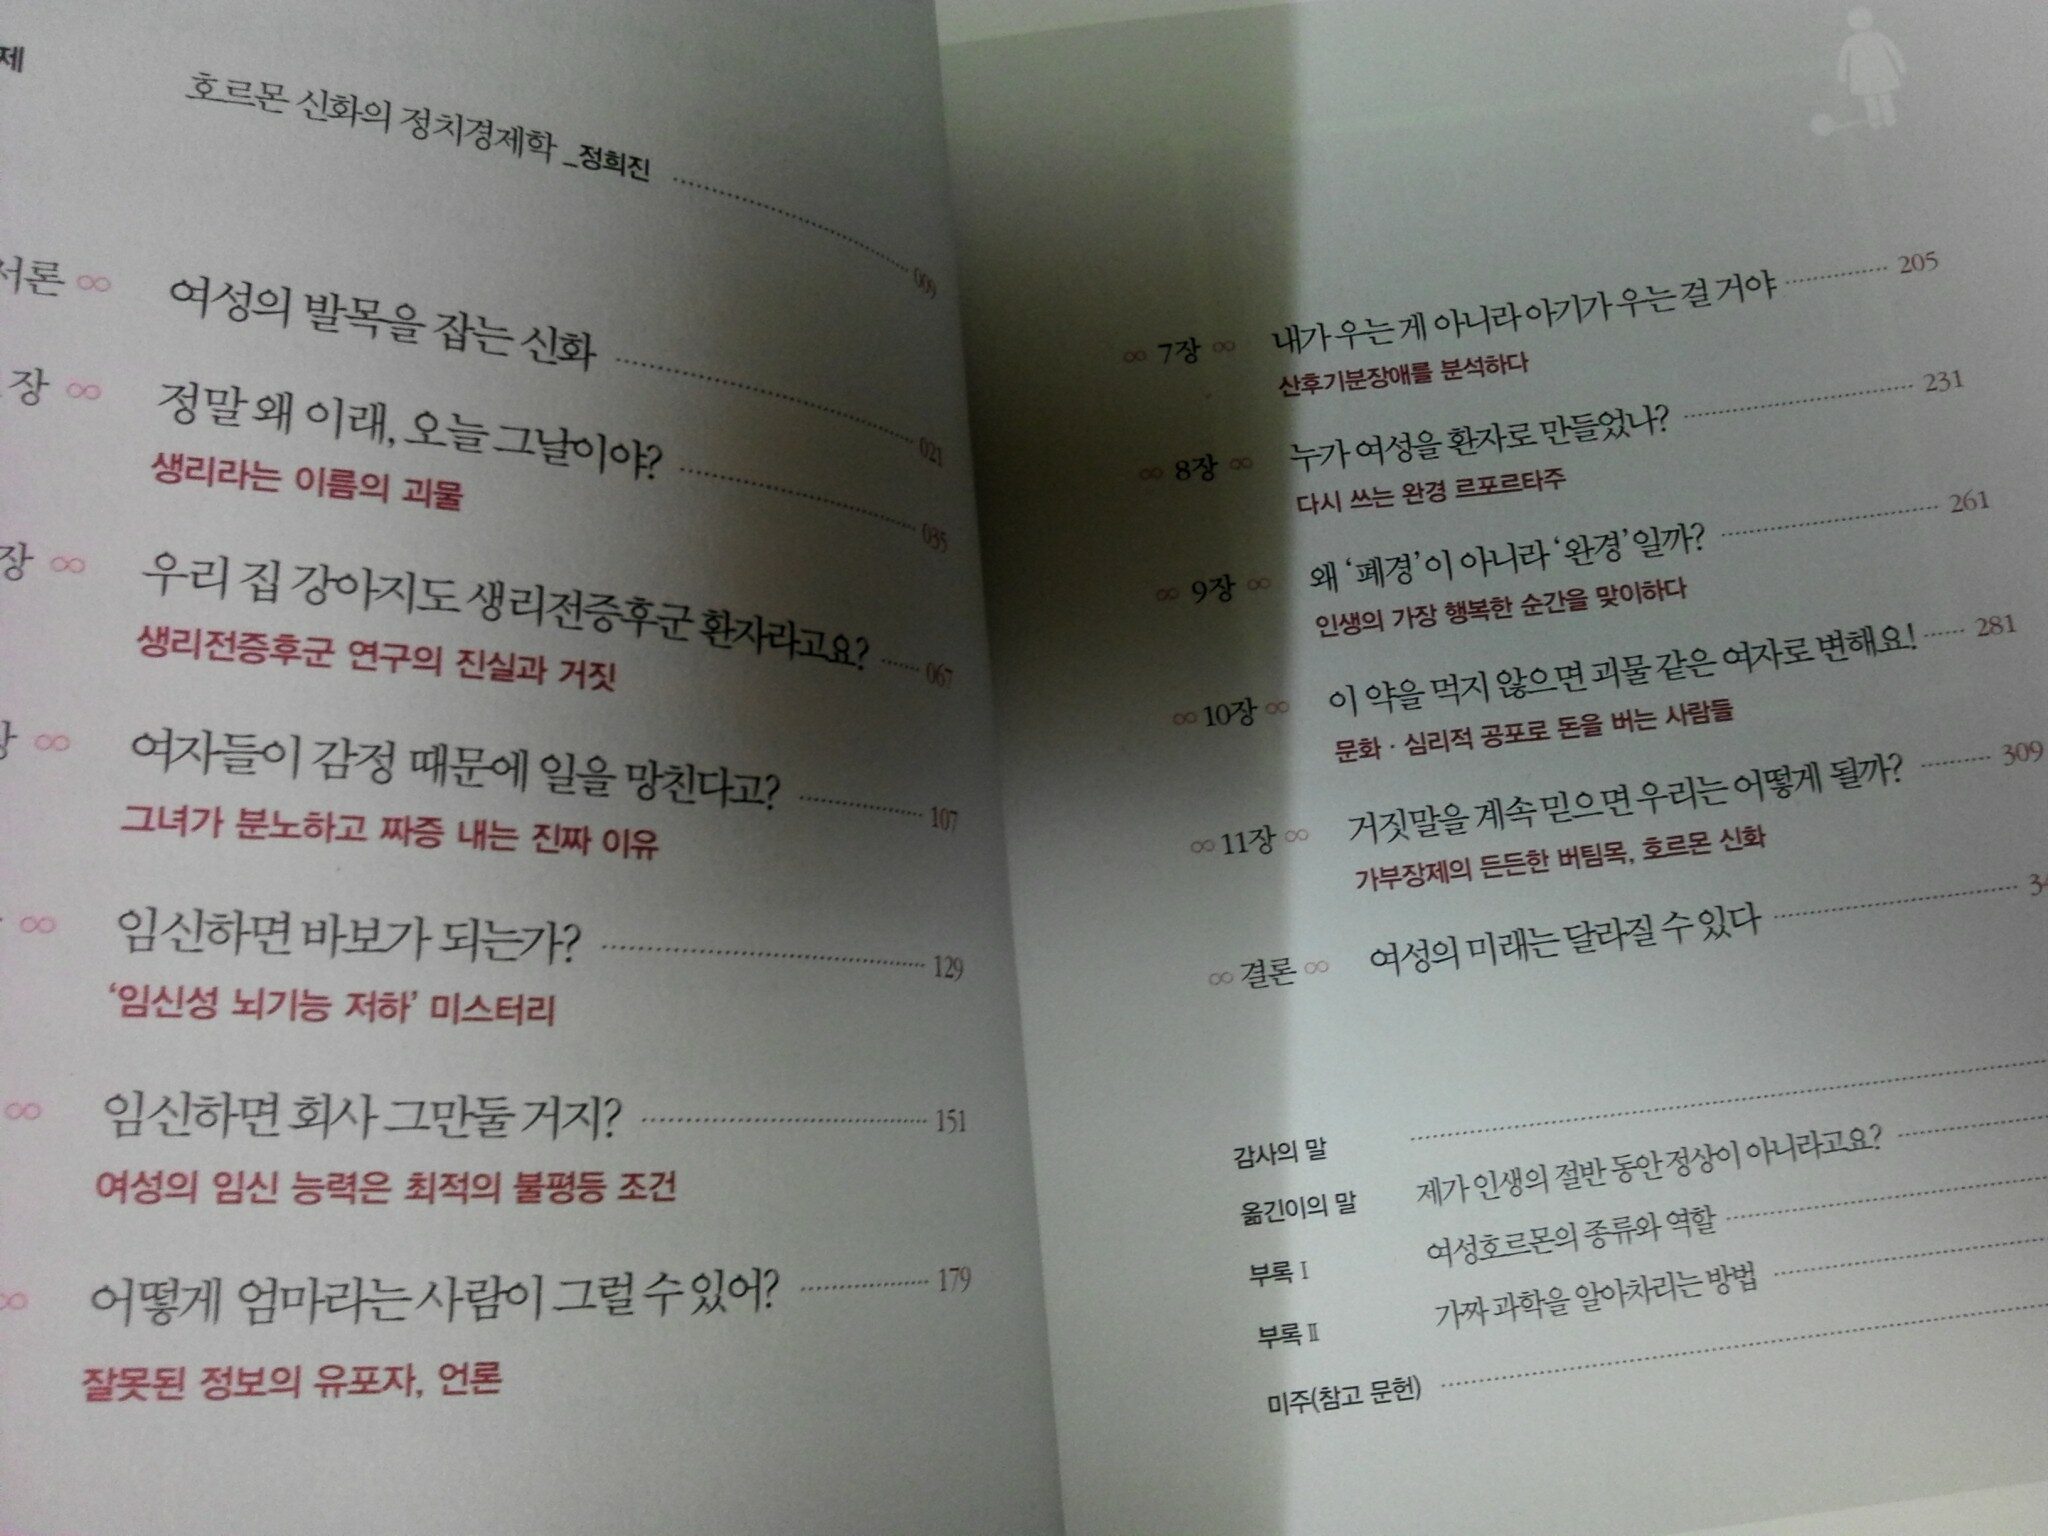 제
호르몬 신화의 정치경제학 _정희진 009
서론 ∞ 여성의 발목을 잡는 신화 021
장 ∞ 정말 왜 이래, 오늘 그날이야? 035
생리라는 이름의 괴물
장 ∞ 우리 집 강아지도 생리전증후군 환자라고요? 067
생리전증후군 연구의 진실과 거짓
∞ 여자들이 감정 때문에 일을 망친다고? 107
그녀가 분노하고 짜증 내는 진짜 이유
∞ 임신하면 바보가 되는가? 129
‘임신성 뇌기능 저하’ 미스터리
∞ 임신하면 회사 그만둘 거지? 151
여성의 임신 능력은 최적의 불평등 조건
∞ 어떻게 엄마라는 사람이 그럴 수 있어? 179
잘못된 정보의 유포자, 언론
∞ 7장 ∞ 내가 우는 게 아니라 아기가 우는 걸 거야 205
산후기분장애를 분석하다
∞ 8장 ∞ 누가 여성을 환자로 만들었나? 231
다시 쓰는 완경 르포르타주
∞ 9장 ∞ 왜 ‘폐경’이 아니라 ‘완경’일까? 261
인생의 가장 행복한 순간을 맞이하다
∞ 10장 ∞ 이 약을 먹지 않으면 괴물 같은 여자로 변해요! 281
문화 · 심리적 공포로 돈을 버는 사람들
∞ 11장 ∞ 거짓말을 계속 믿으면 우리는 어떻게 될까? 309
가부장제의 든든한 버팀목, 호르몬 신화
∞ 결론 ∞ 여성의 미래는 달라질 수 있다
감사의 말
옮긴이의 말 제가 인생의 절반 동안 정상이 아니라고요?
부록 Ⅰ 여성호르몬의 종류와 역할
부록 Ⅱ 가짜 과학을 알아차리는 방법
미주(참고 문헌)